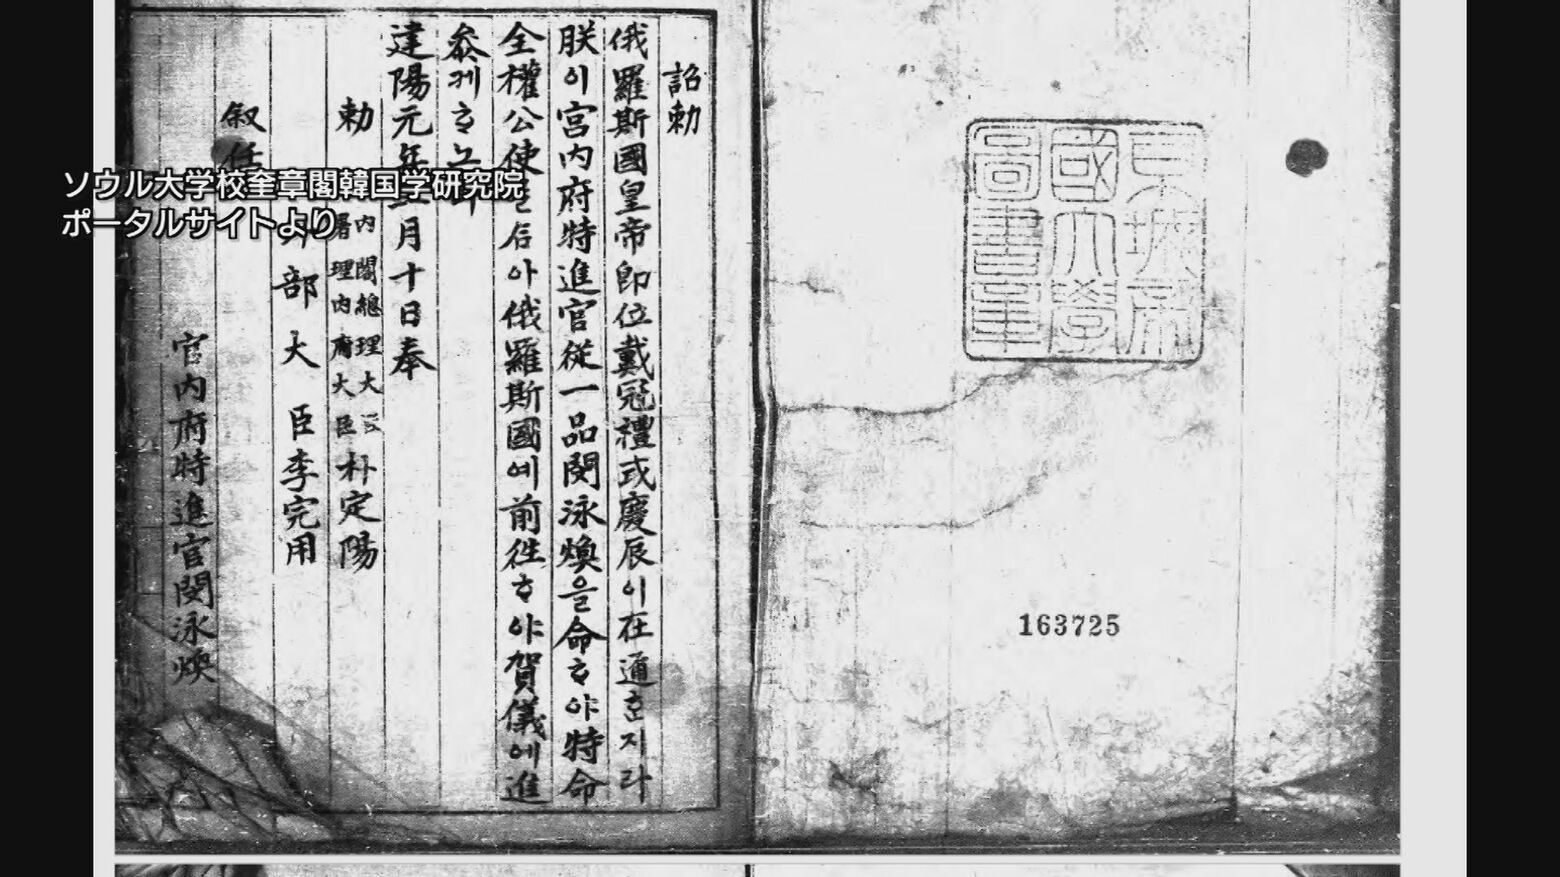 ソウル大学校奎章閣韓国学研究院
ポータルサイトより
京城帝
國大學
圖書章
163725
詔勅
俄羅斯國皇帝卽位戴冠禮式慶辰이在通ᄒᆞᆫ지라
朕이宮內府特進官從一品閔泳煥을命ᄒᆞ야特命
全權公使
아俄羅斯國에前往ᄒᆞ야賀儀에進
叅케ᄒᆞ노
建陽元年
月十日奉
勅
內閣總理大臣
署理內府大臣朴定陽
部大臣李完用
叙任
宮內府特進官閔泳煥